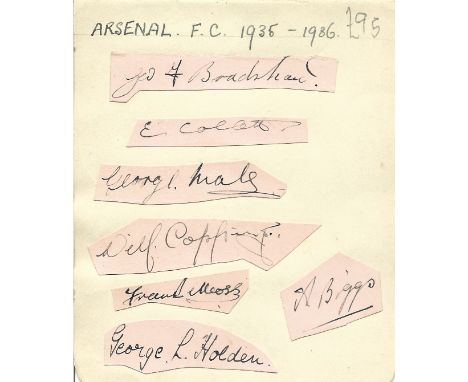 ARSENAL. F.C. 1935 - 1936. £95
F Bradshaw.
E Collett
George Male
Wilf. Copping.
Frank Moss
A Biggs
George L. Holden.